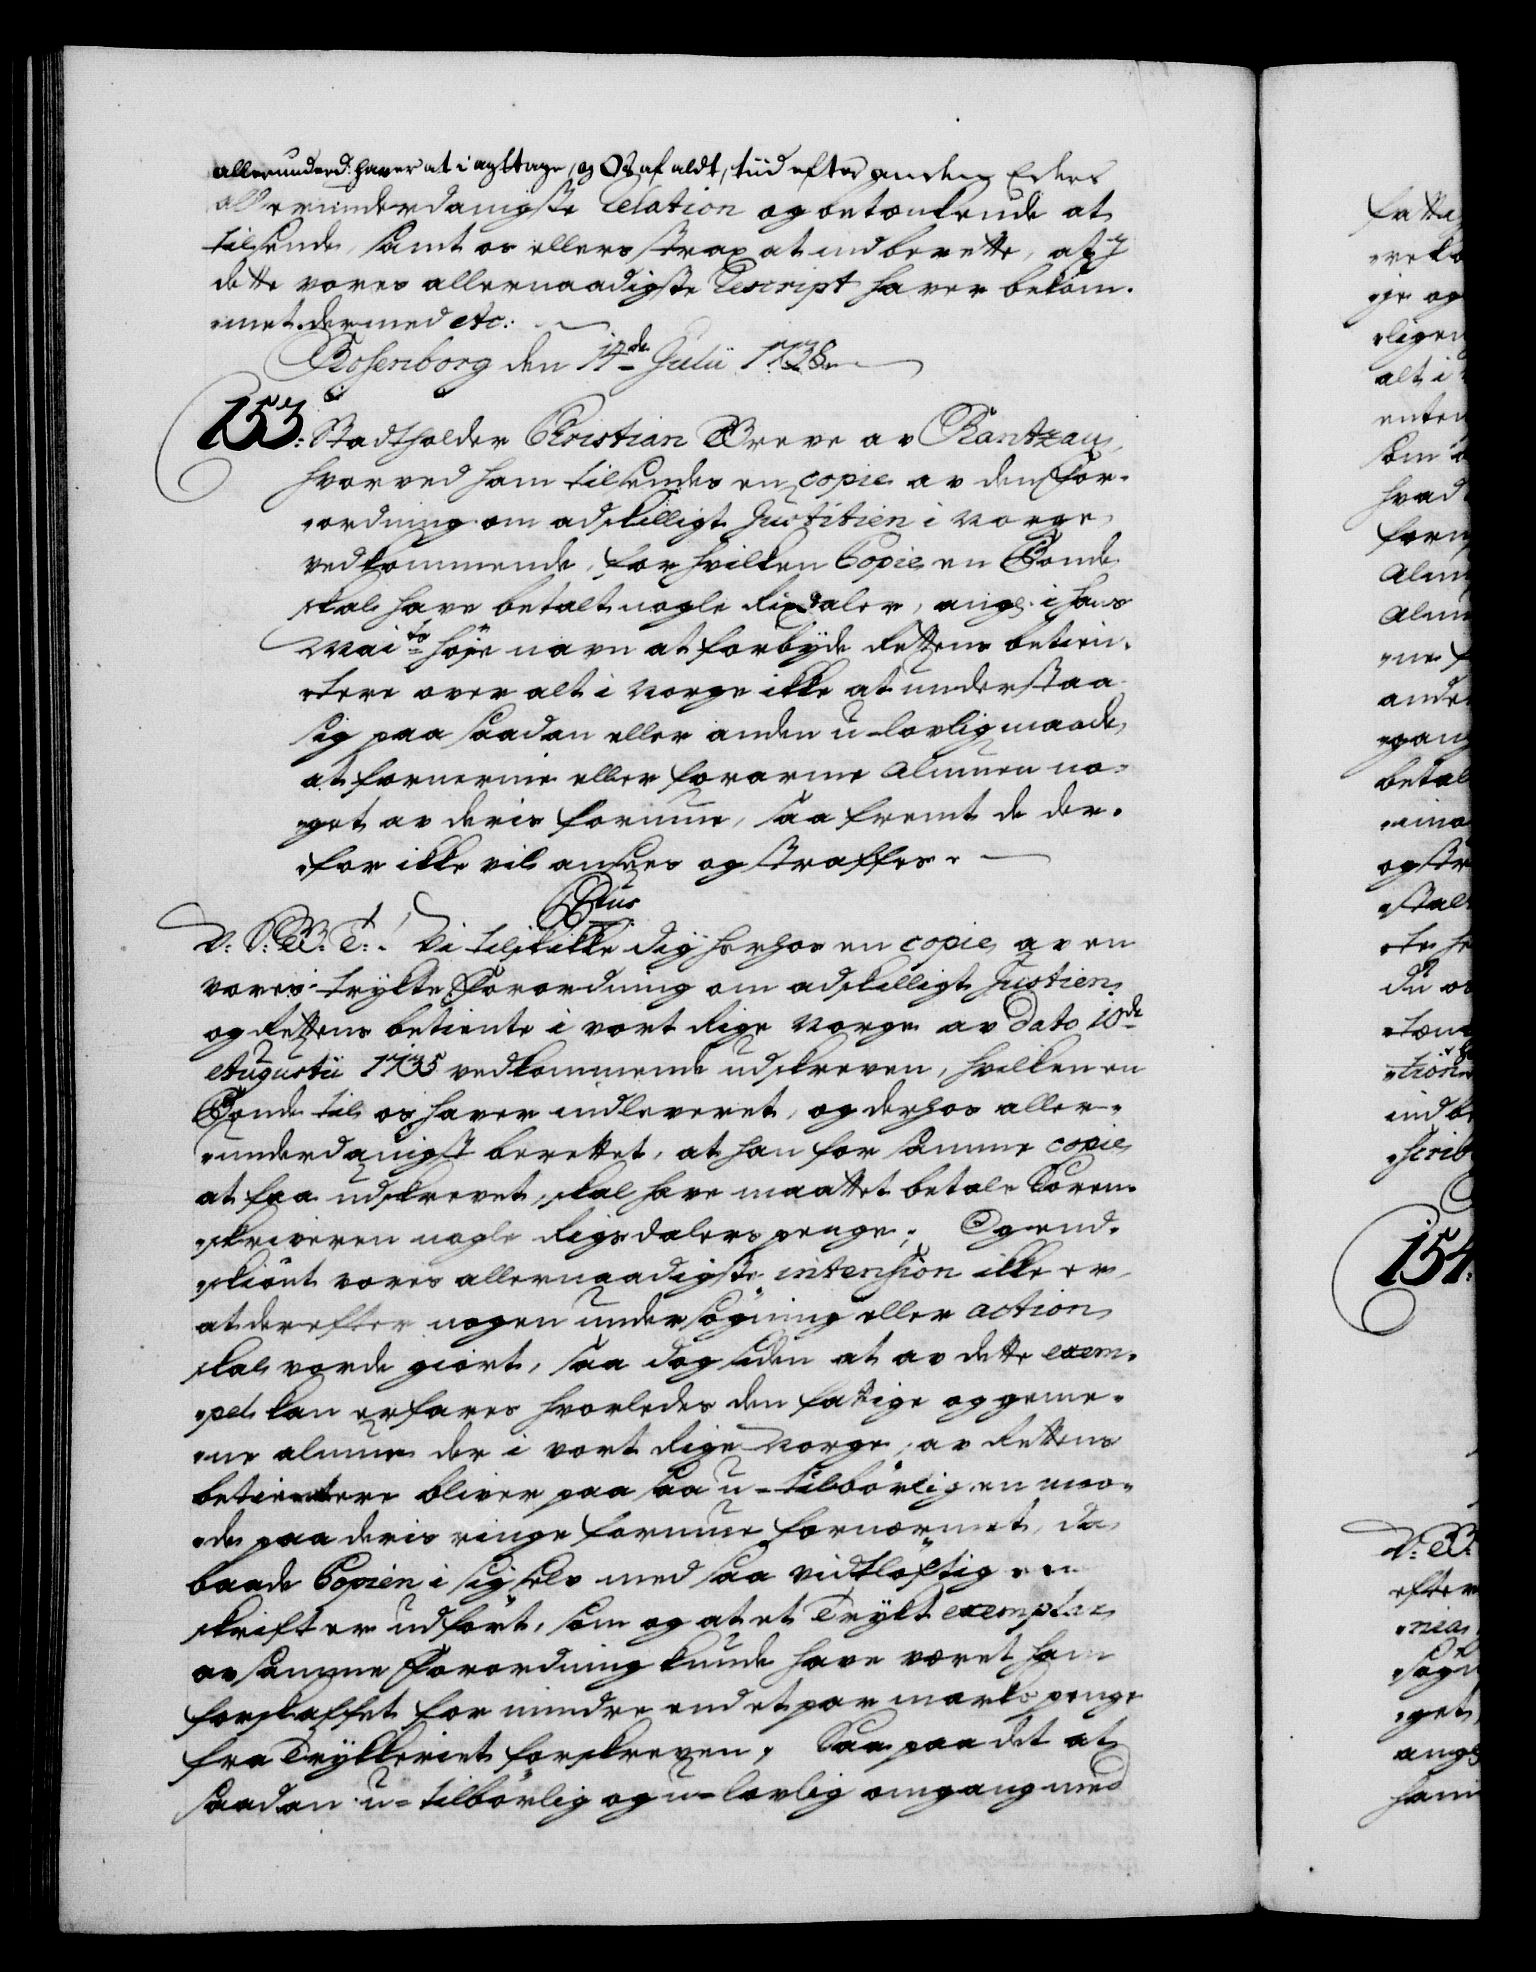 allerunderd: haver at i agttage, og Os af aldt, tiid efter anden Eders
allerunderdanigste Relation og betænkende at
tilsende, samt os ellers strax at indberette, at I
dette vores allernaadigste Rescript haver bekom-
-met. dermed etc:
Rosenborg den 14de Julii 1738.
153: Stadtholder Christian Greve av Rantzau,
hvorved ham tilsendes en copie av den For-
-ordning om adskilligt Justitien i Norge
vedkommende, for hvilken Copie en Bonde
skal have betalt nogle Rixdaler, angl. i hans
Maits høje navn at forbyde Rettens betien-
-tere over alt i Norge ikke at understaa
sig paa saadan eller anden u-lovlig maade
at fornerme eller forarme Almuen no-
-get av deris formue, saa fremt de der-
-for ikke vil ansees og straffes.
V: S: G: T: Vi tilskikke dig herhos en copie av en
vores trykte Forordning om adskilligt Justien
og Rettens betiente i vort Rige Norge av Dato 10de
Augustii 1735 vedkommende udskreven, hvilken en
Bonde til os haver indleveret, og derhos aller-
-underdanigst berettet, at han for samme copie
at faa udskrevet, skal have maattet betale Soren-
-skriveren nogle Rigsdalers penge; Og end-
-skiønt vores allernaadigste intension ikke er,
at derefter nogen undersøgning eller action
skal vorde giort, saa dog siden at av dette exem-
-pel kan erfares hvorledes den fattige og geme-
-ne almue der i vort Rige Norge, av Rettens
betientere bliver paa saa u-tilbørlig en maa-
-de paa deris ringe formue fornærmet, da
baade Copien i sig selv med saa vidtløftig en
skrift er udført, som og at et Trykt exemplar
av samme Forordning kunde have været ham
forskaffet for mindre end et par marks penge
fra Trykkeriet forskreven, Saa paa det at
saadan u-tilbørlig og u-lovlig omgang med
154: